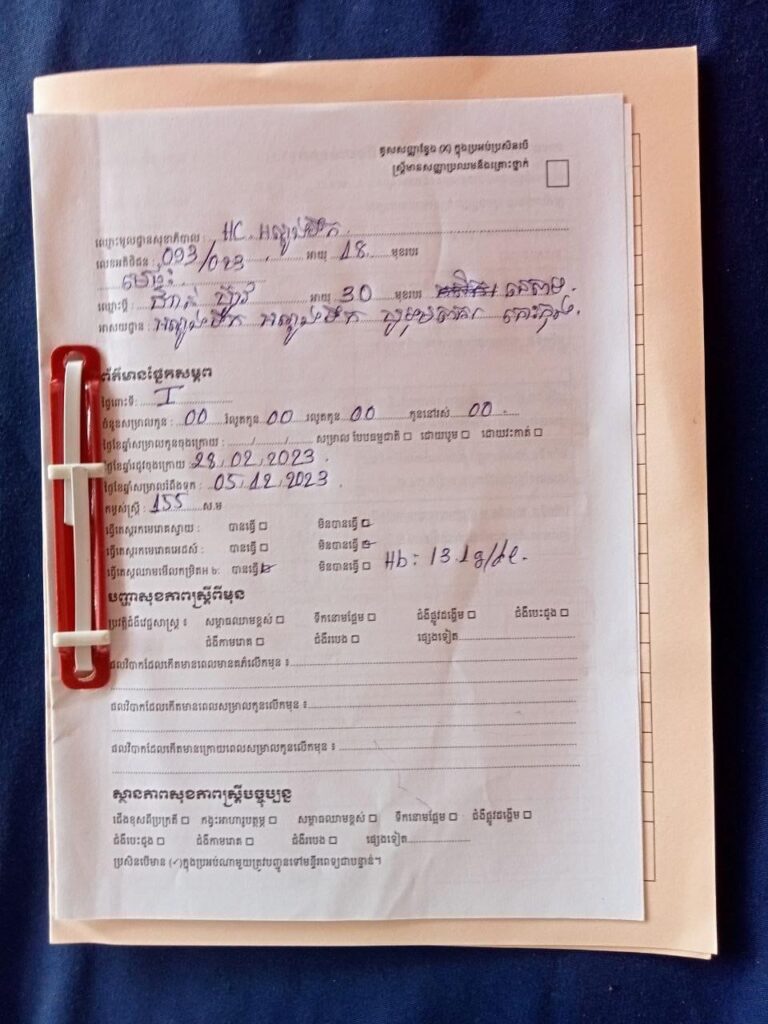 គូសសញ្ញាខ្វែង (X) ក្នុងប្រអប់ប្រសិនបើ
ស្ត្រីមានសញ្ញាប្រឈមនឹងគ្រោះថ្នាក់
ឈ្មោះមូលដ្ឋានសុខាភិបាល : HC អណ្តូងទឹក
លេខអតិថិជន : 093/023 អាយុ 18 មុខរបរ
មេផ្ទះ
ឈ្មោះប្តី : អាយុ 30 មុខរបរ នេសាទ
អាសយដ្ឋាន : អណ្តូងទឹក អណ្តូងទឹក បូទុមសាគរ កោះកុង
ព័ត៌មានផ្នែកសម្ភព
ផ្ទៃពោះទី: I
ចំនួនសម្រាលកូន : 00 រំលូតកូន 00 រលូតកូន 00 កូននៅរស់ 00
ថ្ងៃខែឆ្នាំសម្រាលកូនចុងក្រោយ : / / សម្រាល បែបធម្មជាតិ ☐ ដោយបូម ☐ ដោយវះកាត់ ☐
ថ្ងៃខែឆ្នាំរដូវចុងក្រោយ 28/02/2023
ថ្ងៃខែឆ្នាំសម្រាលរំពឹងទុក : 05/12/2023
កម្ពស់ស្ត្រី : 155 ស.ម
ធ្វើតេស្តរកមេរោគស្វាយ : បានធ្វើ ☐ មិនបានធ្វើ ☑
ធ្វើតេស្តរកមេរោគអេដស៍ : បានធ្វើ ☐ មិនបានធ្វើ ☑
ធ្វើតេស្តឈាមមើលកម្រិតH b: បានធ្វើ ☑ មិនបានធ្វើ ☐ Hb: 13.1g/dl.
បញ្ហាសុខភាពស្ត្រីពីមុន
ប្រវត្តិជំងឺវេជ្ជសាស្ត្រ ៖ សម្ពាធឈាមខ្ពស់ ☐ ទឹកនោមផ្អែម ☐ ជំងឺផ្លូវដង្ហើម ☐ ជំងឺបេះដូង ☐
ជំងឺកាមរោគ ☐ ជំងឺរបេង ☐ ផ្សេងទៀត
ផលវិបាកដែលកើតមានពេលមានគភ៌លើកមុន ៖
ផលវិបាកដែលកើតមានពេលសម្រាលកូនលើកមុន ៖
ផលវិបាកដែលកើតមានក្រោយពេលសម្រាលកូនលើកមុន ៖
ស្ថានភាពសុខភាពស្ត្រីបច្ចុប្បន្ន
ជើងខុសពីប្រក្រតី ☐ កង្វះអាហារូបត្ថម្ភ ☐ សម្ពាធឈាមខ្ពស់ ☐ ទឹកនោមផ្អែម ☐ ជំងឺផ្លូវដង្ហើម ☐
ជំងឺបេះដូង ☐ ជំងឺកាមរោគ ☐ ជំងឺរបេង ☐ ផ្សេងទៀត
ប្រសិនបើមាន (✓)ក្នុងប្រអប់ណាមួយត្រូវបញ្ជូនទៅមន្ទីរពេទ្យជាបន្ទាន់។